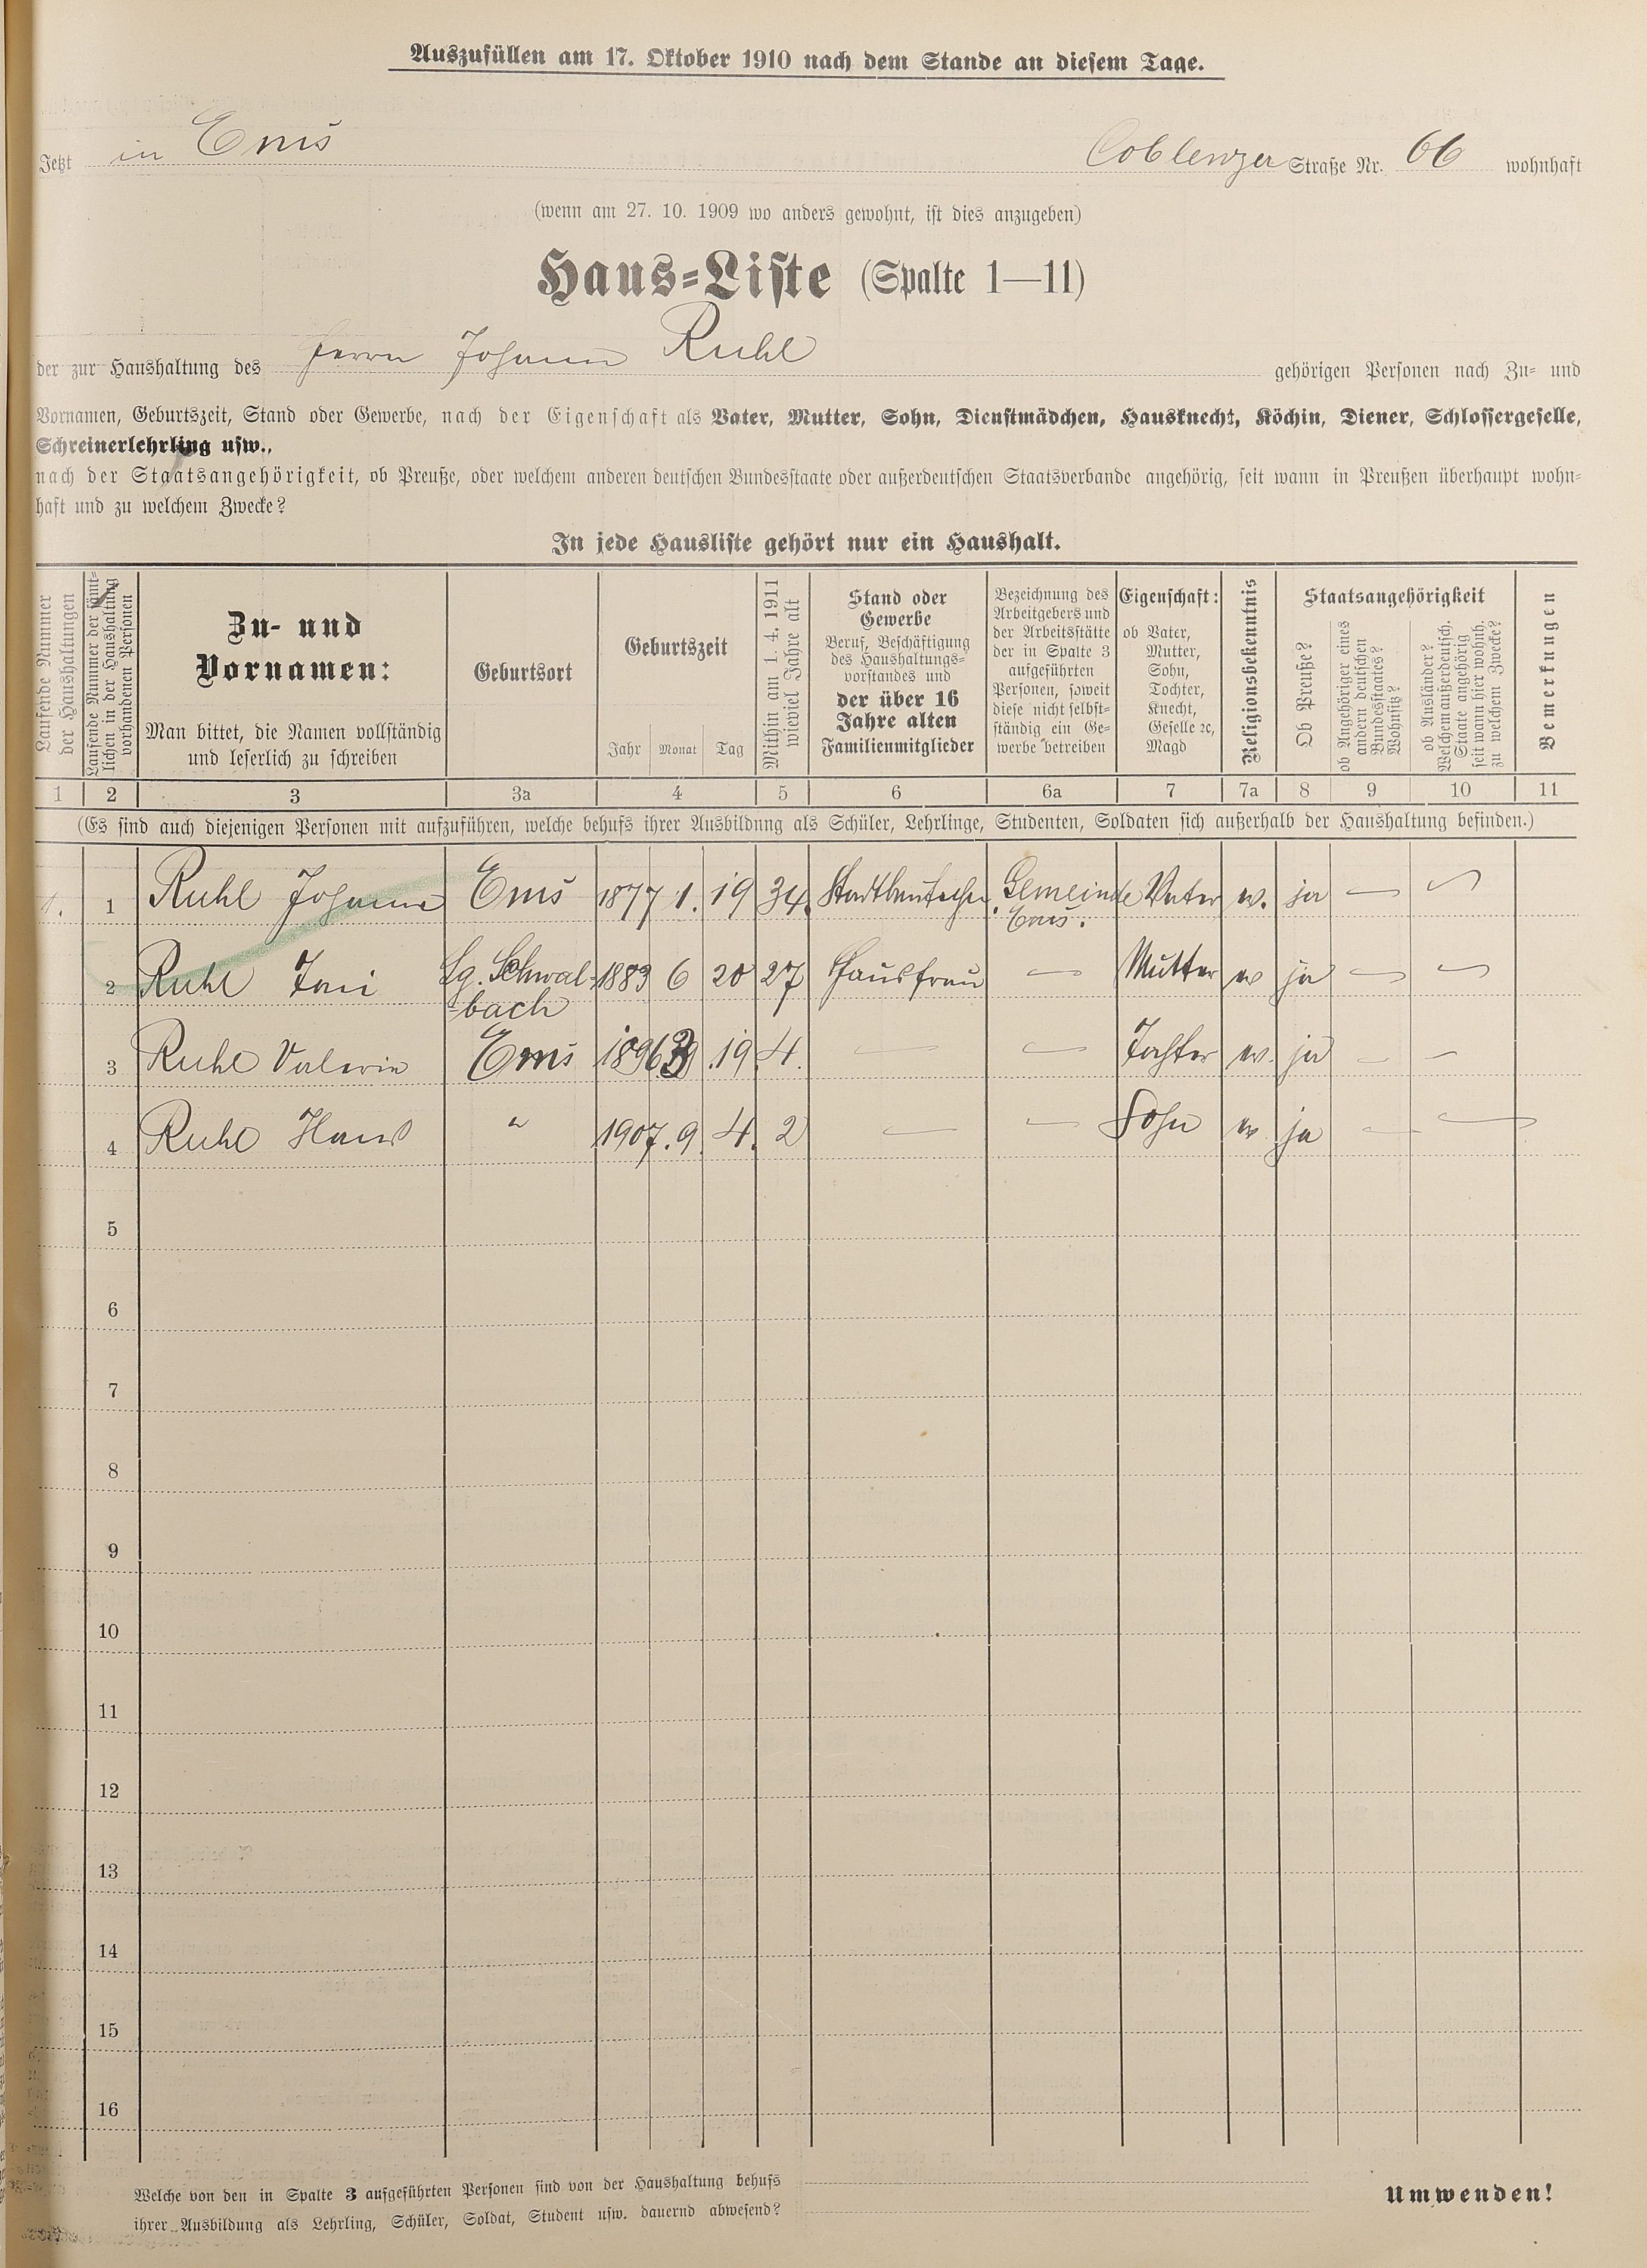 Auszufüllen am 17. Oktober 1910 nach dem Stande an diesem Tage.
Jetzt in Ems Coblenzer Straße Nr. 66 wohnhaft
(wenn am 27. 10. 1909 wo anders gewohnt, ist dies anzugeben)
Haus-Liste (Spalte 1—11)
der zur Haushaltung des Herrn Johann Ruhl gehörigen Personen nach Zu- und
Vornamen, Geburtszeit, Stand oder Gewerbe, nach der Eigenschaft als Vater, Mutter, Sohn, Dienstmädchen, Hausknecht, Köchin, Diener, Schlossergeselle,
Schreinerlehrling usw.,
nach der Staatsangehörigkeit, ob Preuße, oder welchem anderen deutschen Bundesstaate oder außerdeutschen Staatsverbande angehörig, seit wann in Preußen überhaupt wohn-
haft und zu welchem Zwecke?
In jede Hausliste gehört nur ein Haushalt.
Laufende Nummer
der Haushaltungen
Laufende Nummer der sämt-
lichen in der Haushaltung
vorhandenen Personen
Zu- und
Vornamen:
Man bittet, die Namen vollständig
und leserlich zu schreiben
Geburtsort
Geburtszeit
Jahr Monat Tag
Mithin am 1. 4. 1911
wieviel Jahre alt
Stand oder
Gewerbe
Beruf, Beschäftigung
des Haushaltungs-
vorstandes und
der über 16
Jahre alten
Familienmitglieder
Bezeichnung des
Arbeitgebers und
der Arbeitsstätte
der in Spalte 3
aufgeführten
Personen, soweit
diese nicht selbst-
ständig ein Ge-
werbe betreiben
Eigenschaft:
ob Vater,
Mutter,
Sohn,
Tochter,
Knecht,
Geselle ꝛc,
Magd
Religionsbekenntnis
Staatsangehörigkeit
Ob Preuße?
ob Angehöriger eines
andern deutschen
Bundesstaates?
Wohnsitz?
ob Ausländer?
Welchem außerdeutsch.
Staate angehörig
seit wann hier wohnh.
zu welchem Zwecke?
Bemerkungen
1 2 3 3a 4 5 6 6a 7 7a 8 9 10 11
(Es sind auch diejenigen Personen mit aufzuführen, welche behufs ihrer Ausbildnng als Schüler, Lehrlinge, Studenten, Soldaten sich außerhalb der Haushaltung befinden.)
1. 1 Ruhl Johann Ems 1877 1. 19 34. Gemeinde Vater ev. ja — —
Ems.
2 Ruhl Toni Lg. Schwal- 1883 6 20 27 Hausfrau — Mutter ev ja — —
bach
3 Ruhl Valerie Ems .19. 4. — — Tochter ev. ja — —
4 Ruhl Hans " 1907. 9. 4. 2 — — Sohn ev ja — —
5
6
7
8
9
10
11
12
13
14
15
16
Welche von den in Spalte 3 aufgeführten Personen sind von der Haushaltung behufs
ihrer Ausbildung als Lehrling, Schüler, Soldat, Student usw. dauernd abwesend?
Umwenden!